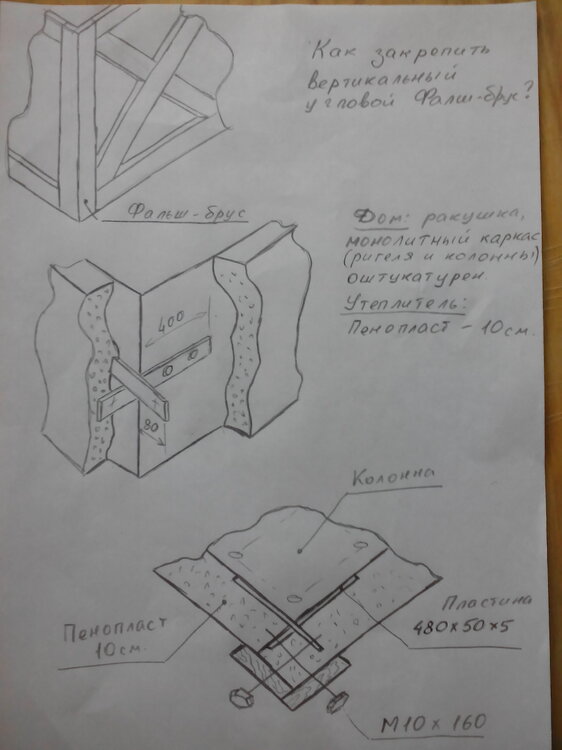 Как закрепить
вертикальный
угловой Фалш-брус?
Фальш-брус
Дом: ракушка,
монолитный каркас
(ригеля и колонны)
оштукатурен.
Утеплитель:
Пенопласт - 10см.
400
80
Колонна
Пенопласт
10см.
Пластина
480х50х5
М10 х 160